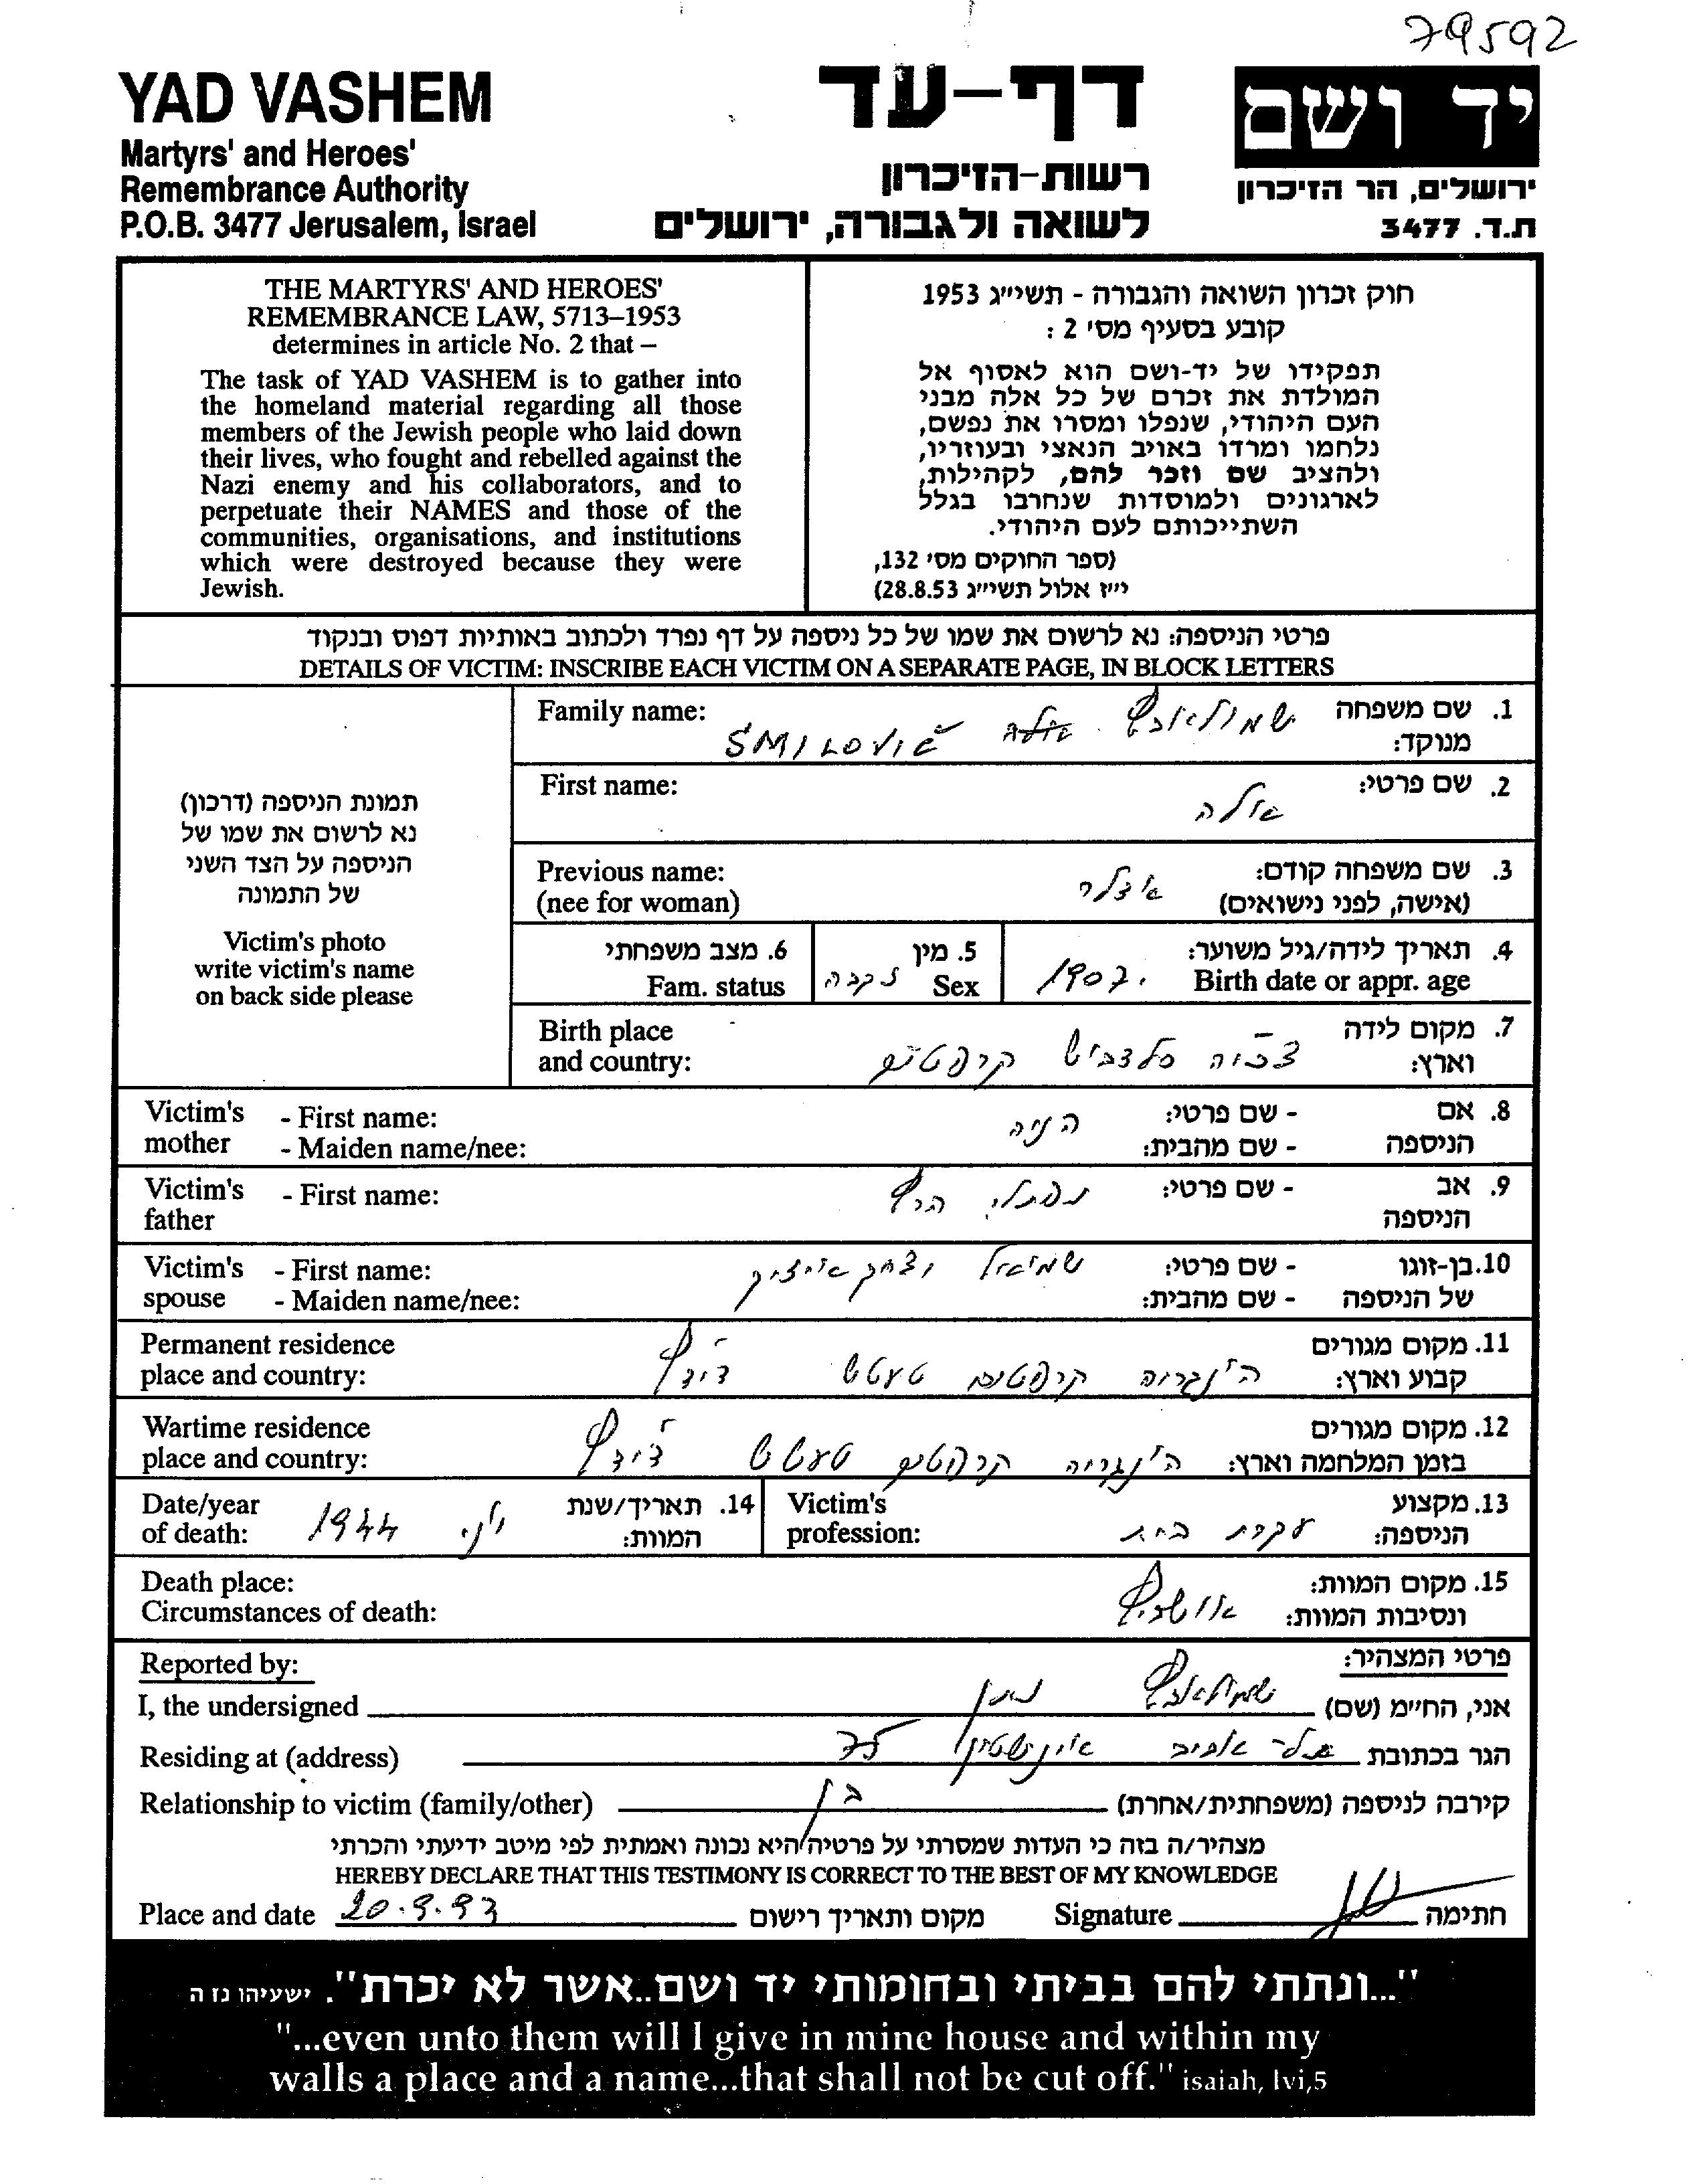 79592
YAD VASHEM
Martyrs' and Heroes'
Remembrance Authority
P.O.B. 3477 Jerusalem, Israel
דף-עד
רשות-הזיכרון
לשואה ולגבורה, ירושלים
יד ושם
ירושלים, הר הזיכרון
ת.ד. 3477
THE MARTYRS' AND HEROES'
REMEMBRANCE LAW, 5713–1953
determines in article No. 2 that –
The task of YAD VASHEM is to gather into
the homeland material regarding all those
members of the Jewish people who laid down
their lives, who fought and rebelled against the
Nazi enemy and his collaborators, and to
perpetuate their NAMES and those of the
communities, organisations, and institutions
which were destroyed because they were
Jewish.
חוק זכרון השואה והגבורה - תשי״ג 1953
קובע בסעיף מס׳ 2 :
תפקידו של יד-ושם הוא לאסוף אל
המולדת את זכרם של כל אלה מבני
העם היהודי, שנפלו ומסרו את נפשם,
נלחמו ומרדו באויב הנאצי ובעוזריו,
ולהציב שם וזכר להם, לקהילות,
לארגונים ולמוסדות שנחרבו בגלל
השתייכותם לעם היהודי.
(ספר החוקים מס׳ 132,
י״ז אלול תשי״ג 28.8.53)
פרטי הניספה: נא לרשום את שמו של כל ניספה על דף נפרד ולכתוב באותיות דפוס ובנקוד
DETAILS OF VICTIM: INSCRIBE EACH VICTIM ON A SEPARATE PAGE, IN BLOCK LETTERS
תמונת הניספה (דרכון)
נא לרשום את שמו של
הניספה על הצד השני
של התמונה
Victim's photo
write victim's name
on back side please
1. שם משפחה שמולאביץ Family name:
מנוקד: SMILOVIČ
2. שם פרטי: First name:
אלה
3. שם משפחה קודם: Previous name:
(אישה, לפני נישואים) (nee for woman)
4. תאריך לידה/גיל משוער: 5. מין 6. מצב משפחתי
Birth date or appr. age 1907. Sex נקבה Fam. status
7. מקום לידה Birth place
וארץ: קרפטים and country:
8. אם - שם פרטי: Victim's - First name:
הניספה - שם מהבית: mother - Maiden name/nee:
9. אב - שם פרטי: נפתלי הרץ Victim's - First name:
הניספה father
10. בן-זוגו - שם פרטי: שמואל Victim's - First name:
של הניספה - שם מהבית: spouse - Maiden name/nee:
11. מקום מגורים Permanent residence
קבוע וארץ: קרפטים place and country:
12. מקום מגורים Wartime residence
בזמן המלחמה וארץ: קרפטים place and country:
13. מקצוע Victim's 14. תאריך/שנת Date/year
הניספה: עקרת בית profession: המוות: יוני 1944 of death:
15. מקום המוות: Death place:
ונסיבות המוות: אושביץ Circumstances of death:
פרטי המצהיר: Reported by:
אני, החי״מ (שם) שמולאביץ נתן I, the undersigned
הגר בכתובת תל-אביב איינשטיין 75 Residing at (address)
קירבה לניספה (משפחתית/אחרת) בן Relationship to victim (family/other)
מצהיר/ה בזה כי העדות שמסרתי על פרטיה היא נכונה ואמתית לפי מיטב ידיעתי והכרתי
HEREBY DECLARE THAT THIS TESTIMONY IS CORRECT TO THE BEST OF MY KNOWLEDGE
Place and date 20.9.93 מקום ותאריך רישום Signature חתימה
"...ונתתי להם בביתי ובחומותי יד ושם..אשר לא יכרת". ישעיהו נז ה
"...even unto them will I give in mine house and within my
walls a place and a name...that shall not be cut off." isaiah, lvi,5